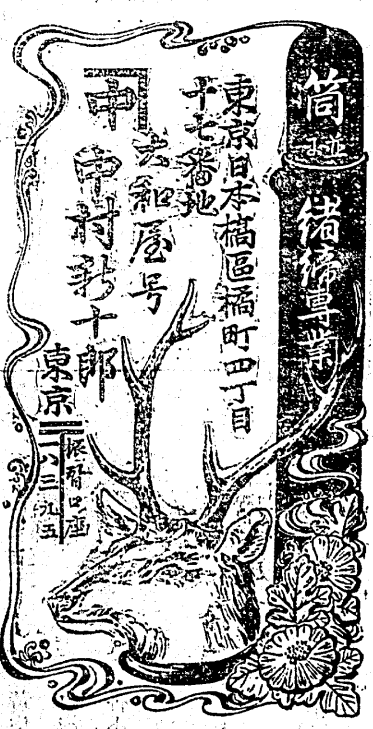 筒 並 緒締専業
東京日本橋區橘町四丁目
十七番地
大和屋号
中 中村彩十郎
東京
振替口座
一八三九五